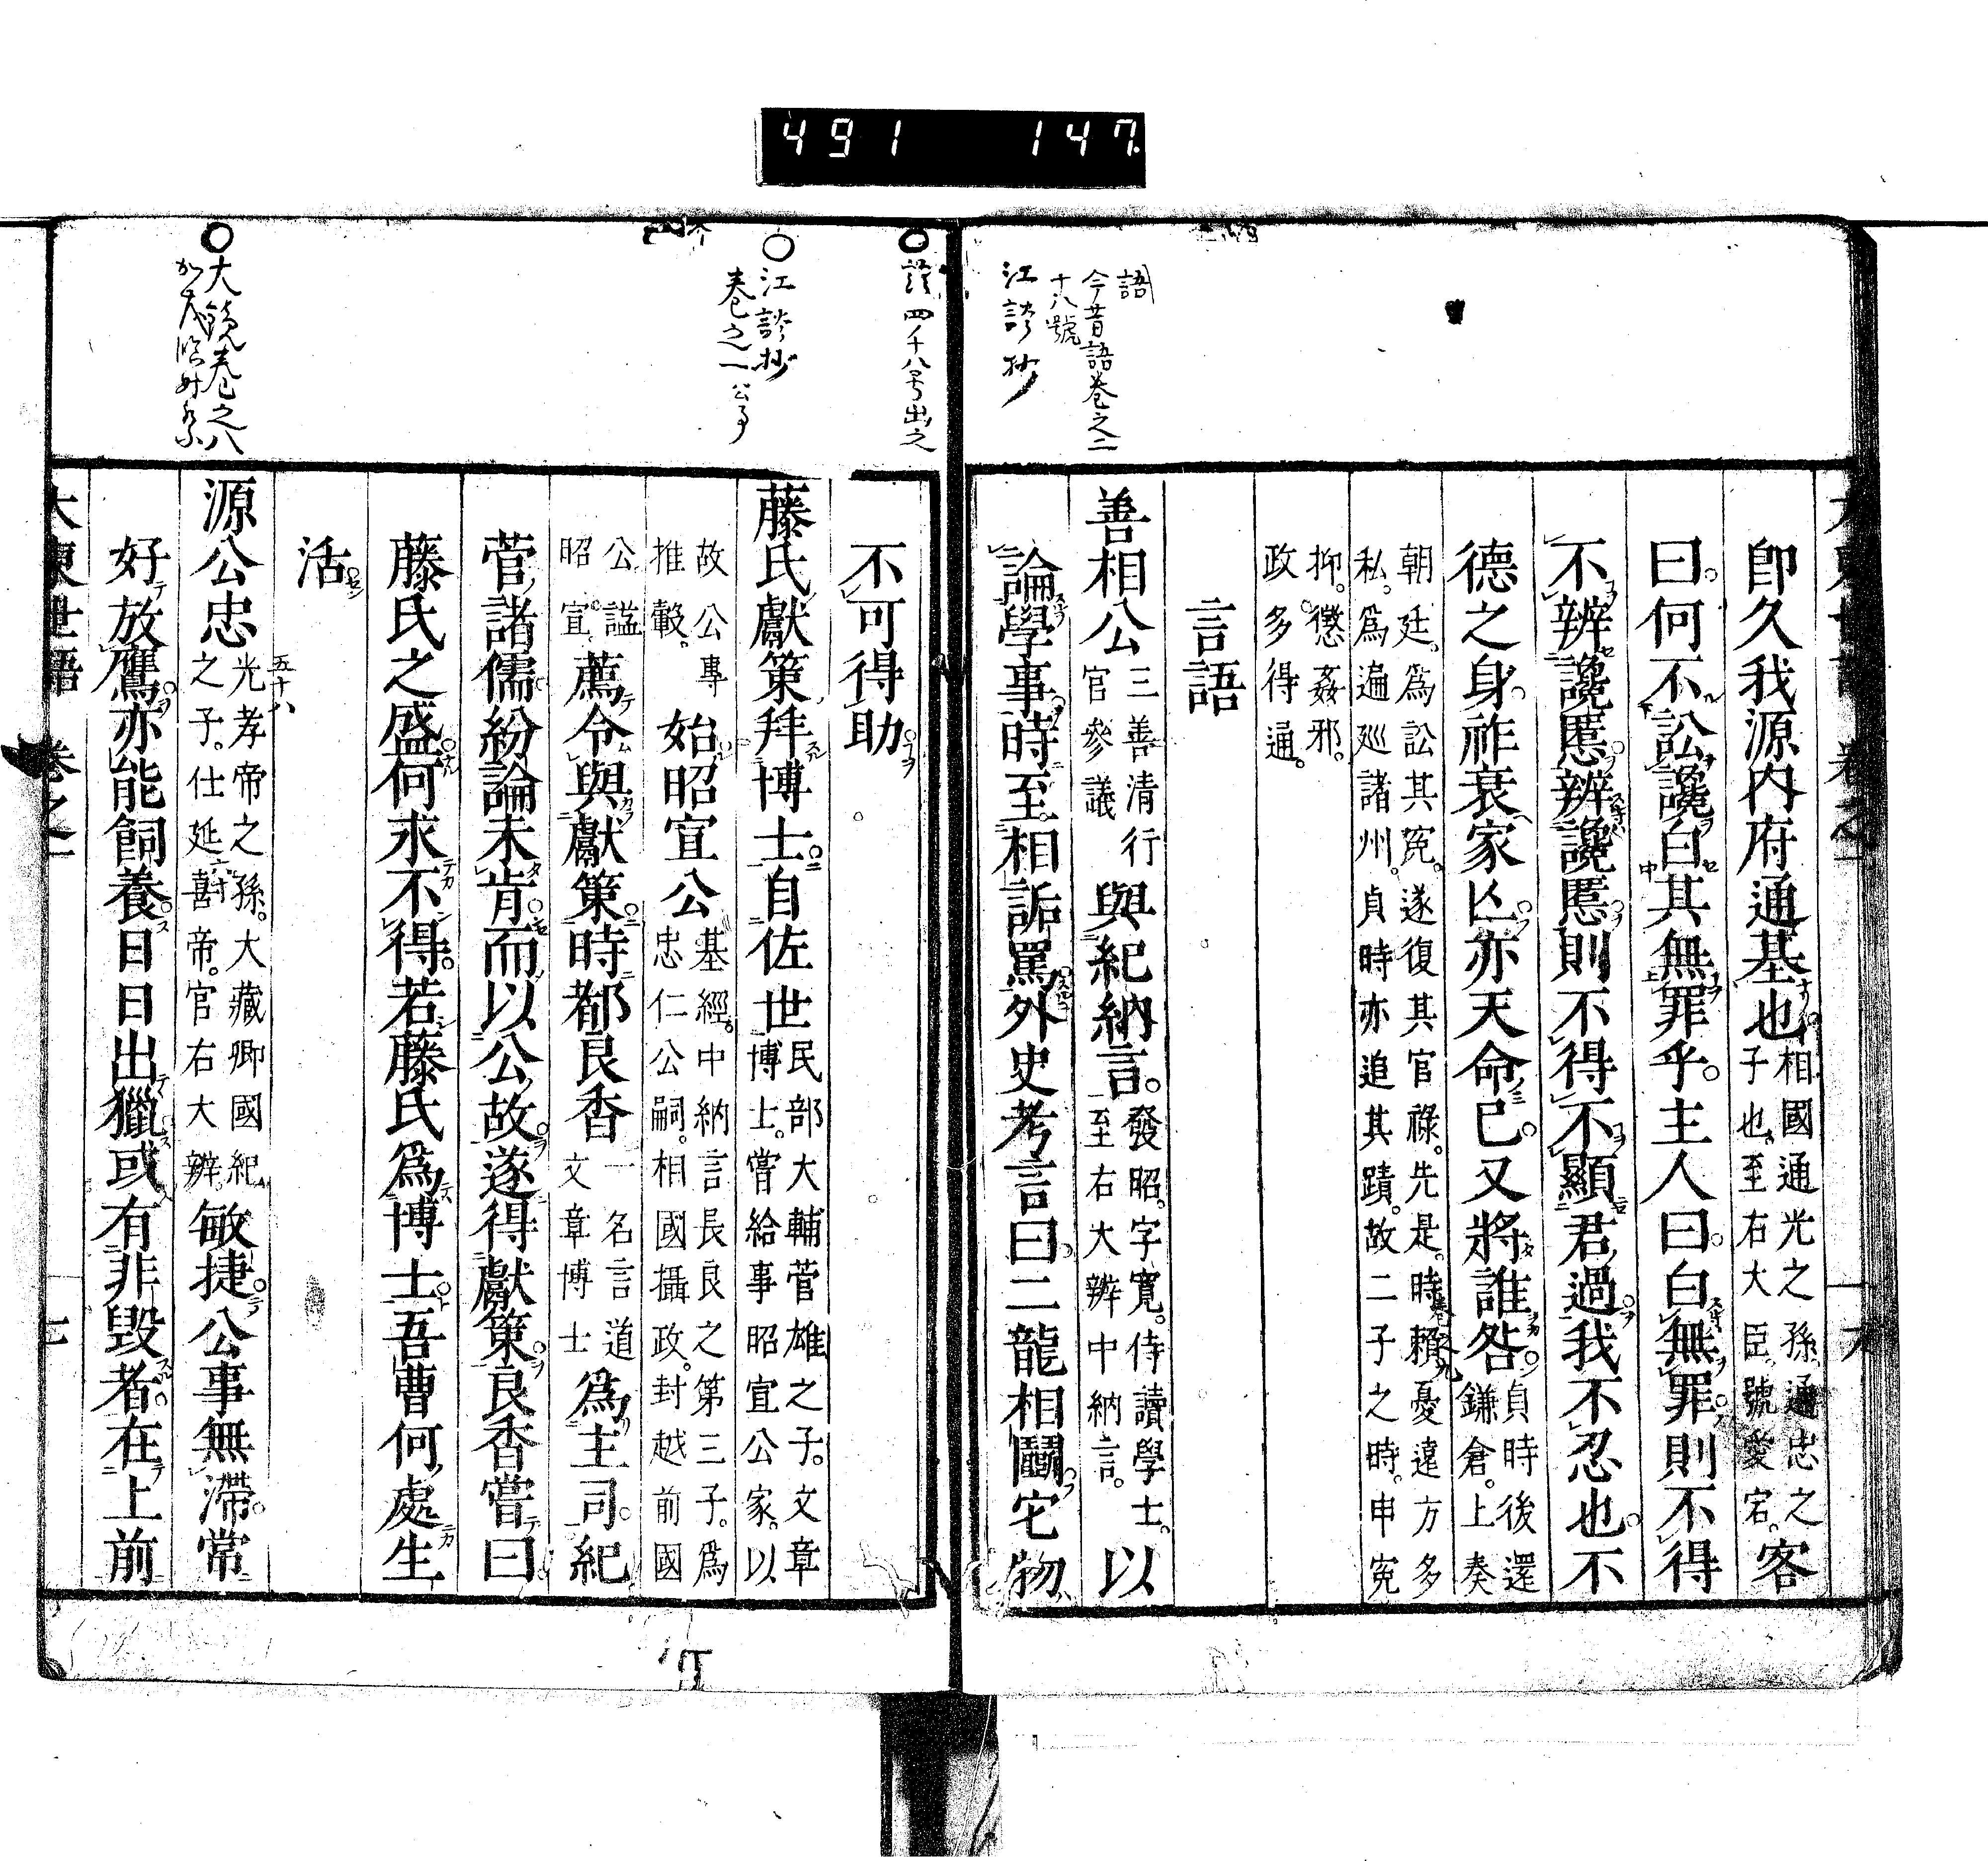 491 147
大東世語 卷之一 六
卽久我源内府通基也相國通光之孫。通忠之子也。至右大臣。號愛宕。客
曰。何不訟讒白其無罪乎。主人曰。白無罪則不得
不辨讒慝。辨讒慝則不得不顯君過。我不忍也。不
德之身。祚衰家亾。亦天命已。又將誰咎。貞時後還鎌倉。上奏
朝廷。爲訟其冤。遂復其官祿。先是。時賴憂遠方多私。爲遍廵諸州。貞時亦追其蹟。故二子之時。申冤
抑。懲姦邪。政多得通。
言語
善相公三善清行官參議與紀納言。發昭。字寬。侍讀學士。至右大辨中納言。以
論學事。時至相詬罵。外史考言曰。二龍相鬭。宅物
語
今昔語卷之二
十八號
江談抄
不可得助。
藤氏獻策拜博士。自佐世民部大輔菅雄之子。文章博士。嘗給事昭宣公家。以
故公專推轂。始昭宣公基經。中納言長良之第三子。爲忠仁公嗣。相國攝政。封越前國
公謚昭宣。薦令與獻策。時都良香一名言道文章博士爲主司。紀
菅諸儒紛論未肯。而以公故。遂得獻策。良香嘗曰
藤氏之盛。何求不得。若藤氏爲博士。吾曹何處生
活。
源公忠光孝帝之孫。大藏卿國紀之子。仕延喜帝。官右大辨。敏捷。公事無滯。常
好放鷹。亦能飼養。日日出獵。或有非毀者。在上前
大東世語 卷之一 七
四十八号出之
江談抄
卷之一公事
大鏡卷之八
五十八